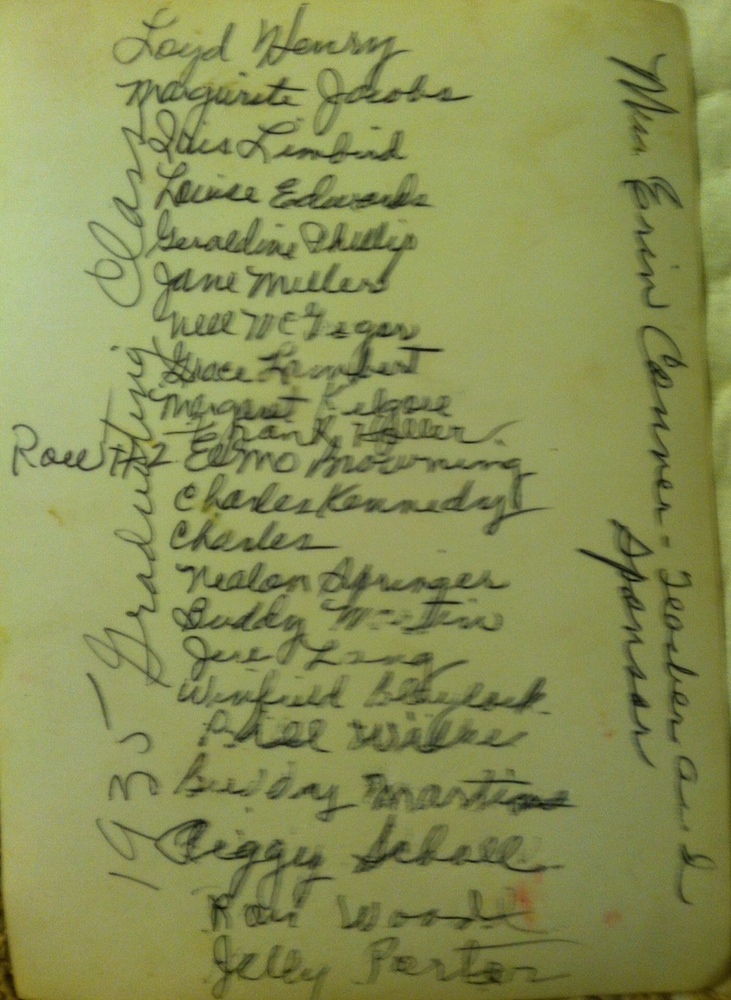 Loyd Henry
Margurite Jacobs
Lois Limbird
Louise Edwards
Geraldine Phillip
Jane Miller
Nell McGegor
Grace Lambert
Margaret Kilgore
Frank Holler
Row #2 Elmo Browning
Charles Kennedy
Charles
Nealon Springer
Buddy Martin
Jere Lang
Winfield Blaylock
Bill Wilke
Buddy Martin
Piggy Scholl
Ron Woods
Jelly Porter
1935 - Graduating Class
Mrs. Erin Conner - Teacher and
Sponsor